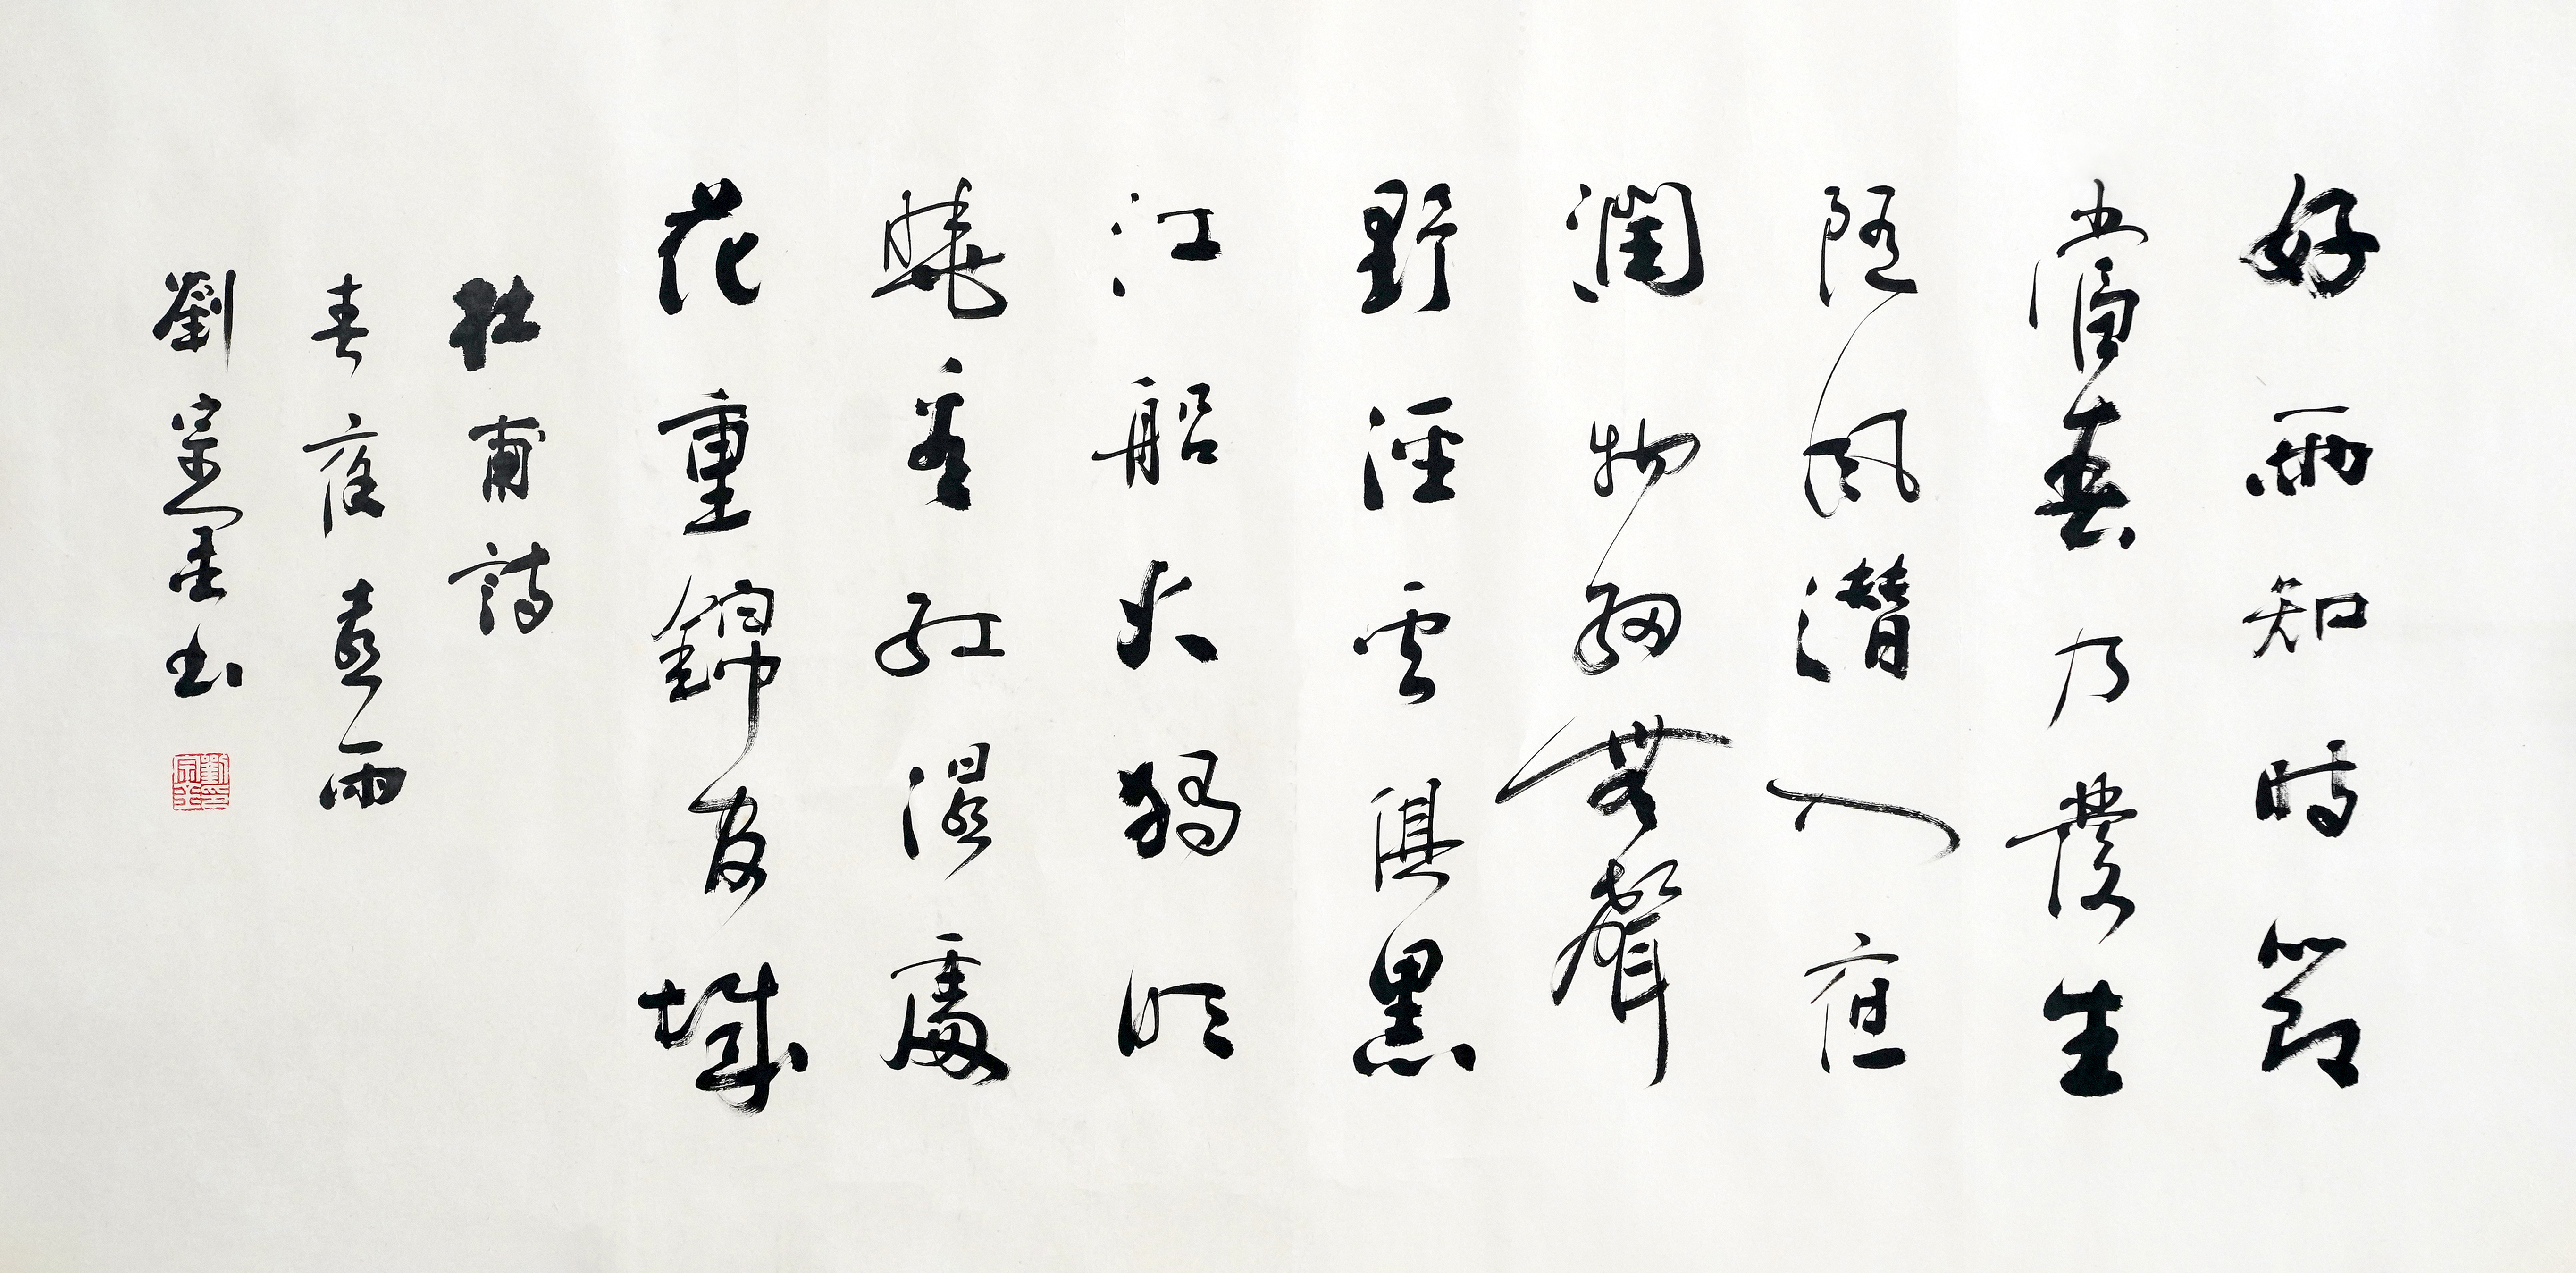 好雨知時節
當春乃發生
隨風潛入夜
潤物細無聲
野徑雲俱黑
江船火獨明
曉看紅濕處
花重錦官城
杜甫詩
春夜喜雨
劉宗書